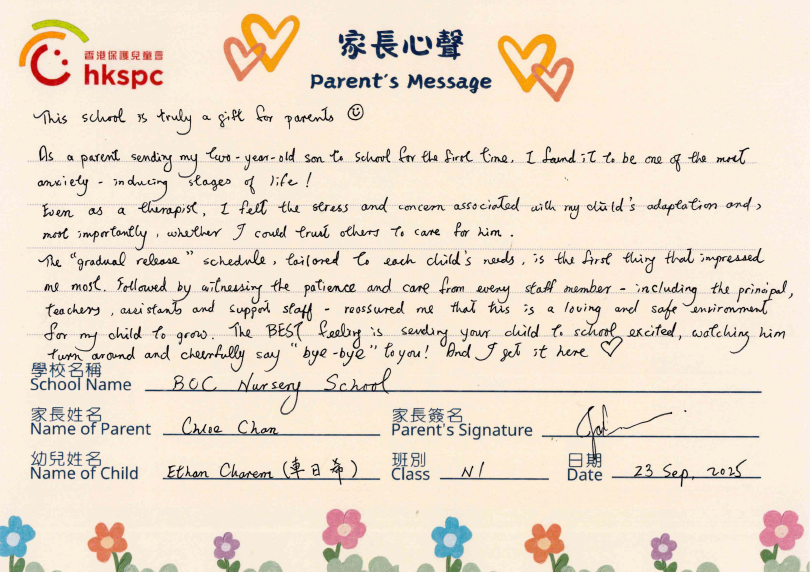 香港保護兒童會
hkspc
家長心聲
Parent's Message
This school is truly a gift for parents ☺
As a parent sending my two-year-old son to school for the first time, I found it to be one of the most
anxiety-inducing stages of life!
Even as a therapist, I felt the stress and concern associated with my child's adaptation and,
most importantly, whether I could trust others to care for him.
The "gradual release" schedule, tailored to each child's needs, is the first thing that impressed
me most. Followed by witnessing the patience and care from every staff member - including the principal,
teachers, assistants and support staff - reassured me that this is a loving and safe environment
for my child to grow. The BEST feeling is sending your child to school excited, watching him
turn around and cheerfully say "bye-bye" to you! And I get it here ♡
學校名稱
School Name BOC Nursery School
家長姓名
Name of Parent Chloe Chan
家長簽名
Parent's Signature
幼兒姓名
Name of Child Ethan Charem (車日希)
班別
Class N1
日期
Date 23 Sep, 2025